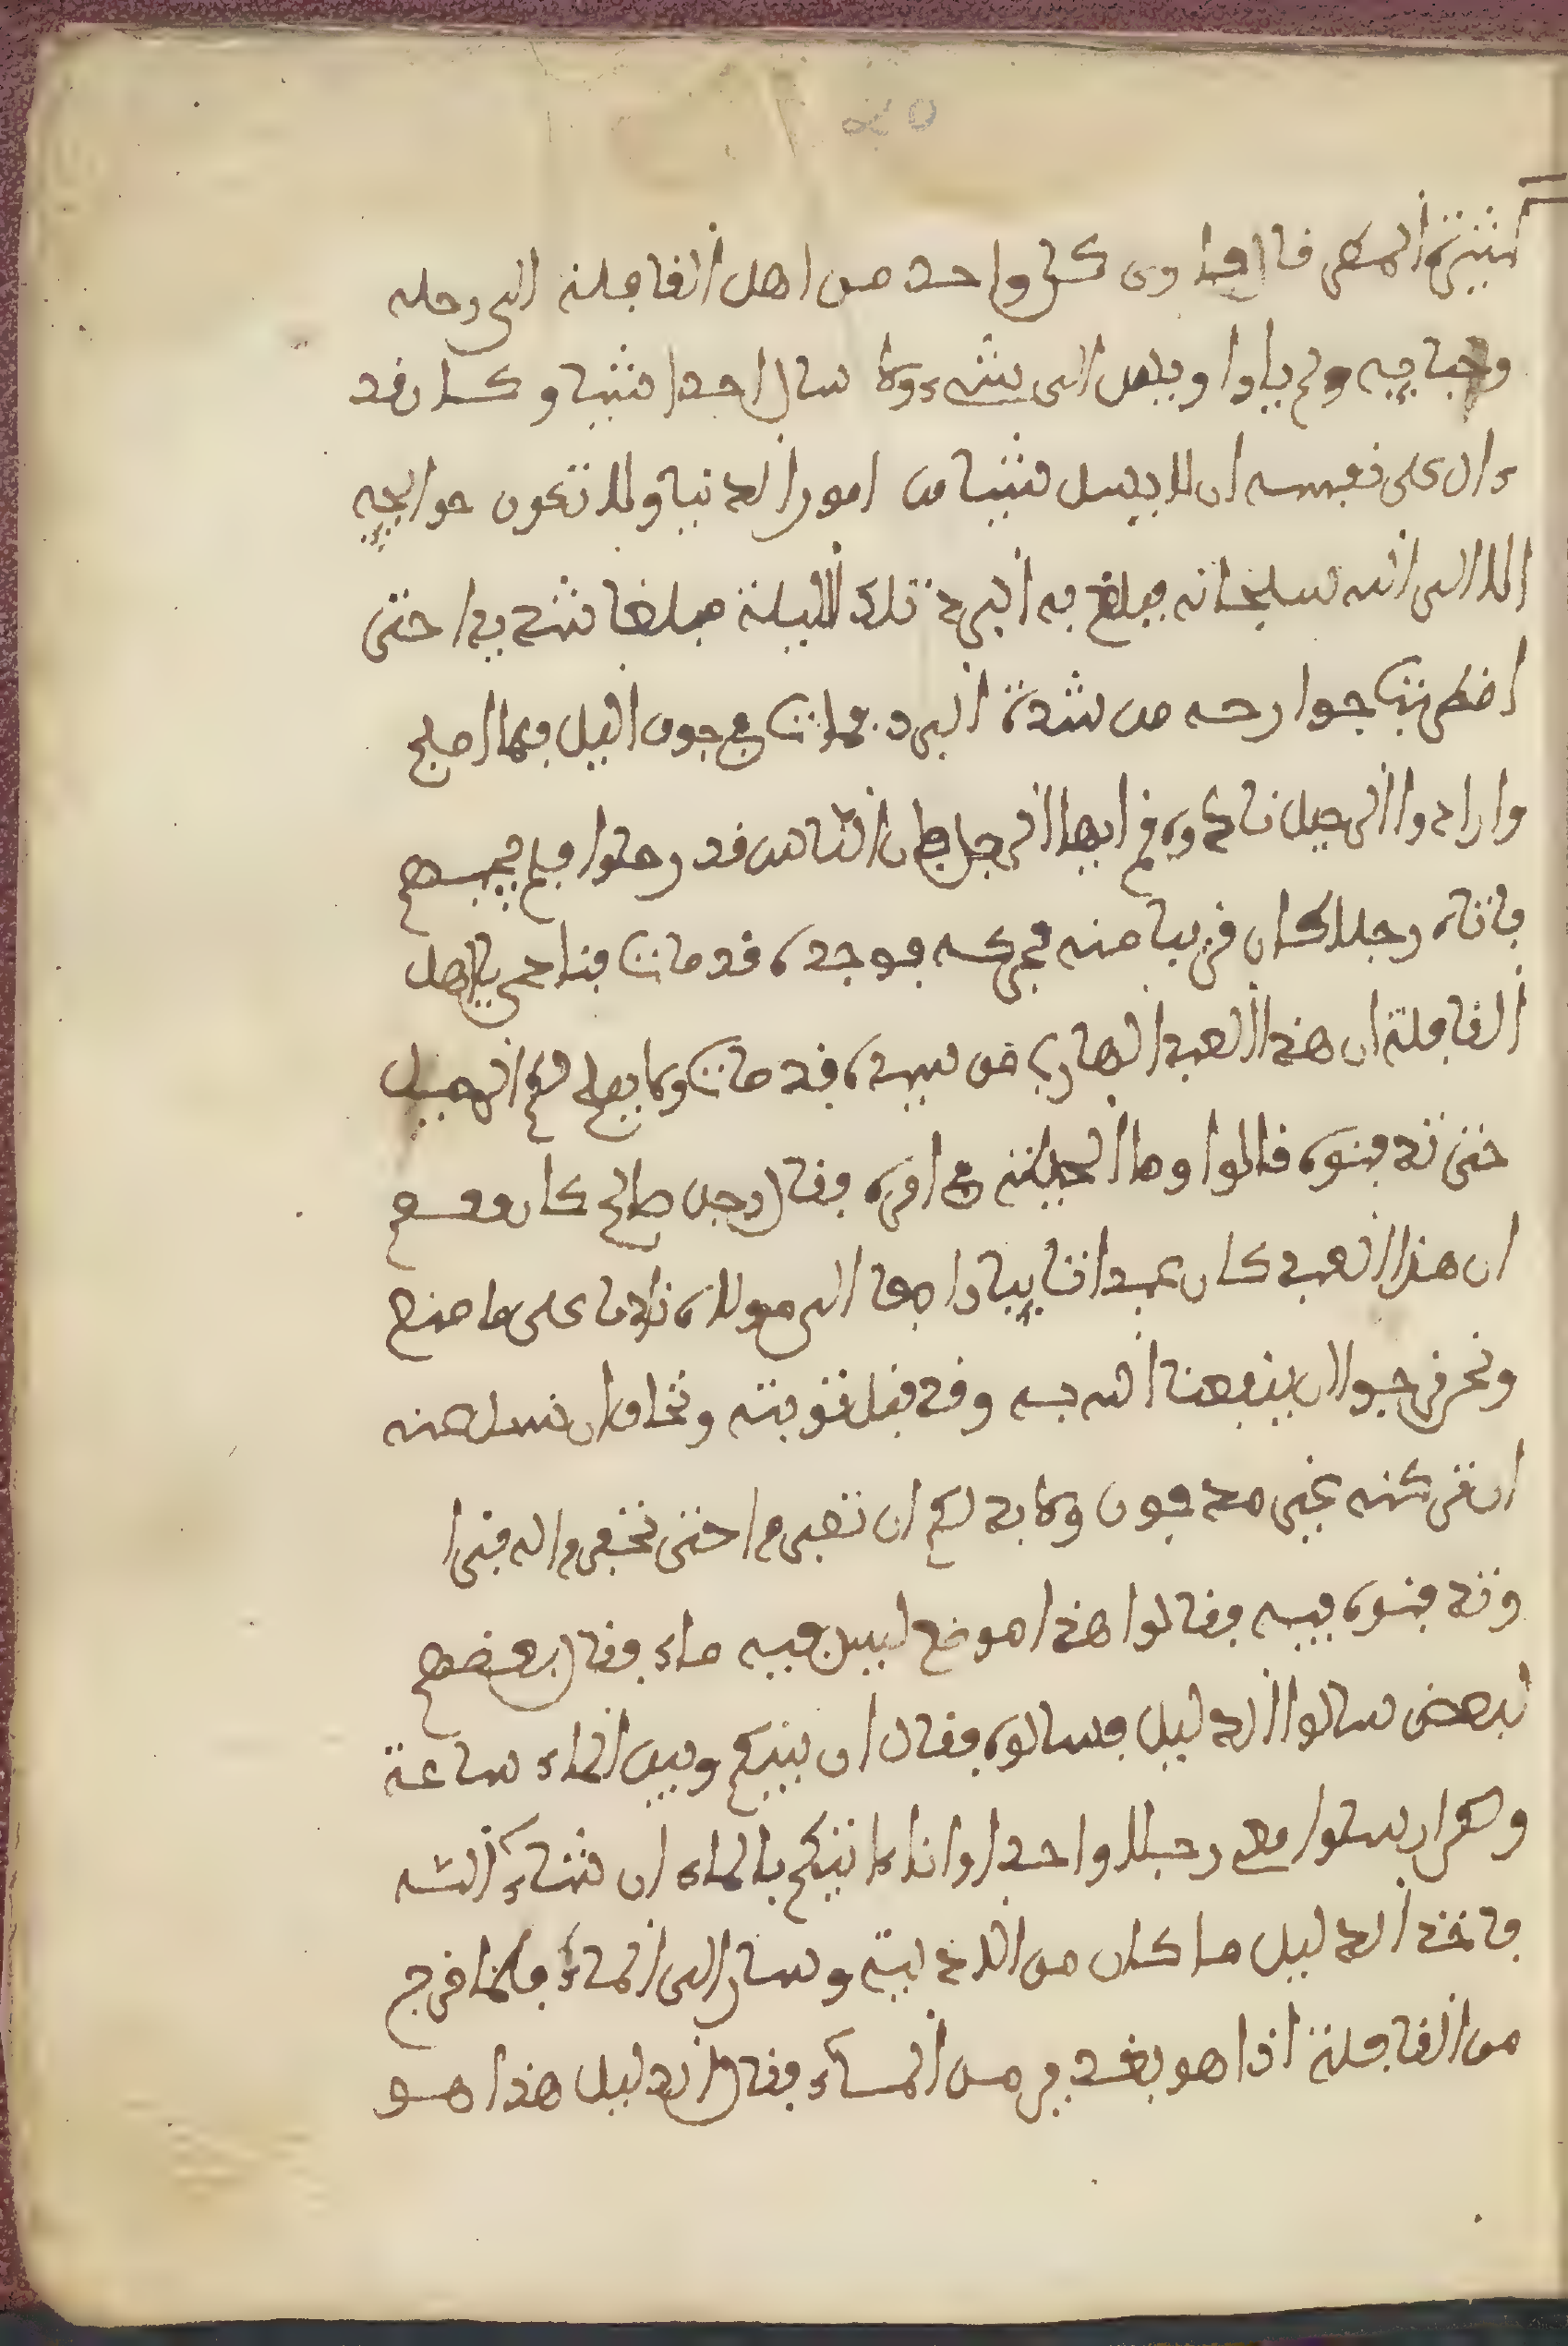 كثيرة المطر قال فاوى كل واحد من اهل القافلة الى رحله
وخبا يه ولم ياوا ويلس الى شىء ولا سال احدا شيا وكان قد
ءالى على نفسه ان لا يسل شيا من امور الدنيا ولا تكون حوايجه
الا الى الله سبحانه فبلغ به البرد تلك الليلة مبلغا شديدا حتى
اضطربت جوارحه من شدة البرد فمات في جوف اليل فلما اصبح
وارادوا الرحيل نادوه قم ايها الرجل فان الناس قد رحلوا فلم يجبهم
فاتاه رجلا كان قريبا منه فحركه فوجده قد مات فنادى يا اهل
القافلة ان هذا العبد الهارب من سيده قد مات ولا يصلح لكم الرحيل
حتى تدفنوه قالوا وما الحيلة في امره فقال رجل صالح كان معهم
ان هذا العبد كان عبدا تايبا راجعا الى مولاه نادما على ما صنع
ونحن نرجوا ان ينفعنا الله به وقد قبل توبته ونخاف ان نسل عنه
ان تركنه بغير مدفون ولا بد لكم ان تصبروا حتى نحفروا له قبرا
وتدفنوه فيه فقالوا هذا موضع ليس فيه ماء فقال بعضهم
لبعض سالوا الدليل فسالوه فقال ان بينكم وبين الماء ساعة
ولكن ارسلوا معي رجلا واحدا وانا ءاتيكم بالماء ان شاء الله
فاخذ الدليل ما كان من الاءنية وسار الى الماء فلما خرج
من القافلة اذا هو بغدير من الماء فقال الدليل هذا هو